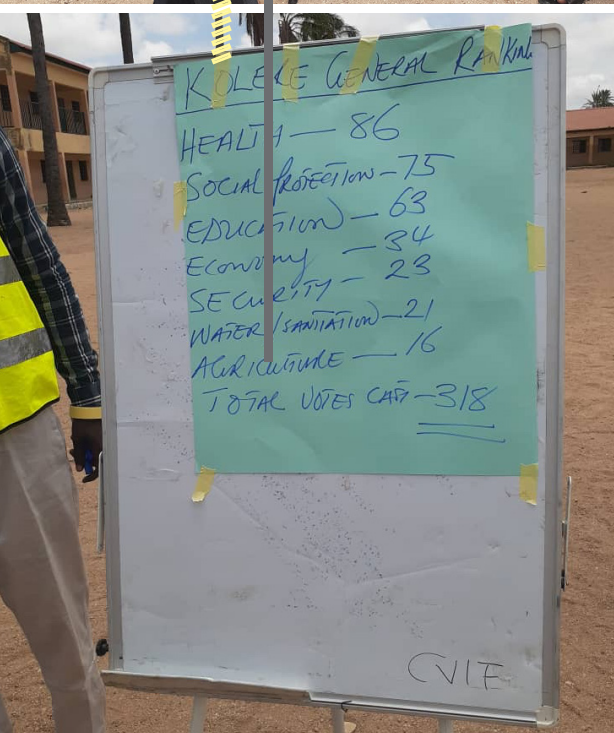 KOLERE GENERAL RANKING
HEALTH — 86
SOCIAL PROTECTION — 75
EDUCATION — 63
ECONOMY — 34
SECURITY — 23
WATER/SANITATION — 21
AGRICULTURE — 16
TOTAL VOTES CAST — 318
CVIE